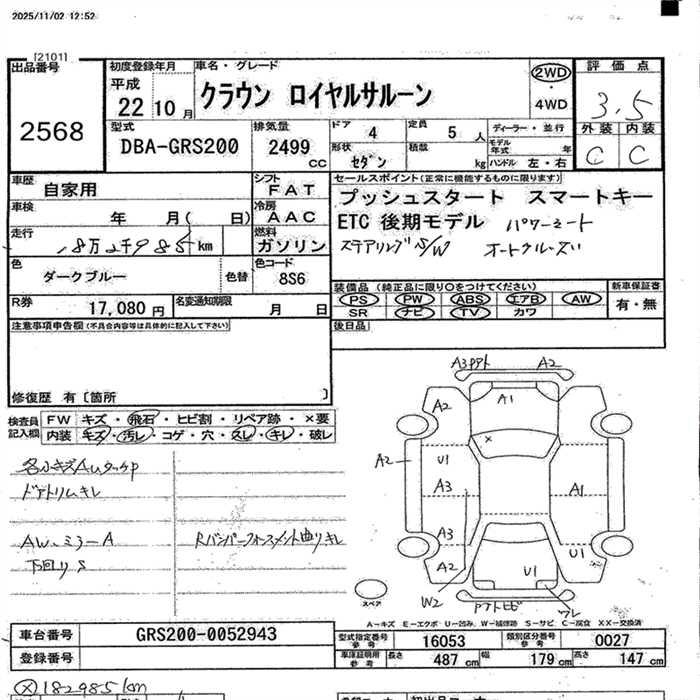 2025/11/02 12:52
[2101]
出品番号
2568
初度登録年月
平成
22 10月
車名・グレード
クラウン ロイヤルサルーン
2WD
・
4WD
評価点
3.5
外装 内装
C C
型式
DBA-GRS200
排気量
2499
cc
ドア 4
定員 5人
ディーラー・並行
形状 セダン
積載 kg
モデル年式 年
ハンドル 左・右
車歴
自家用
シフト
FAT
車検
年 月( 日)
冷房
AAC
走行
18万2千985 km
燃料
ガソリン
色
ダークブルー
色替
色コード
8S6
R券
17,080 円
名変通知期限
月 日
セールスポイント(正常に機能するものに限ります)
プッシュスタート スマートキー
ETC 後期モデル パワーシート
ステアリングS/W オートクルーズ
装備品 (純正品に限り○をつけてください)
PS PW ABS エアB AW
SR ナビ TV カワ
新車保証書
有・無
後日品
注意事項申告欄(不具合内容等は具体的に記入して下さい)
修復歴 有〔箇所 〕
検査員
記入欄
FW キズ・飛石・ヒビ割・リペア跡・×要
内装 キズ・汚レ・コゲ・穴・スレ・キレ・破レ
各小キズAuタッチP
ドアトリムキレ
AW、ミラーA
下回りS
Rバンパーフォースメント曲リキレ
A3Pアト A2
A1
A2
×
A2
U1
A3
A1
A3
A2
U1
U1
W2
Pアトヒビ
ワレ
スペア
A―キズ E―エクボ U―凹ミ、W―補修跡 S―サビ C―腐食 XX―交換済
車台番号
GRS200-0052943
登録番号
型式指定番号
参考
16053
類別区分番号
参考
0027
車庫証明用
参考
長さ 487 cm
幅 179 cm
高さ 147 cm
Ⓧ182985km